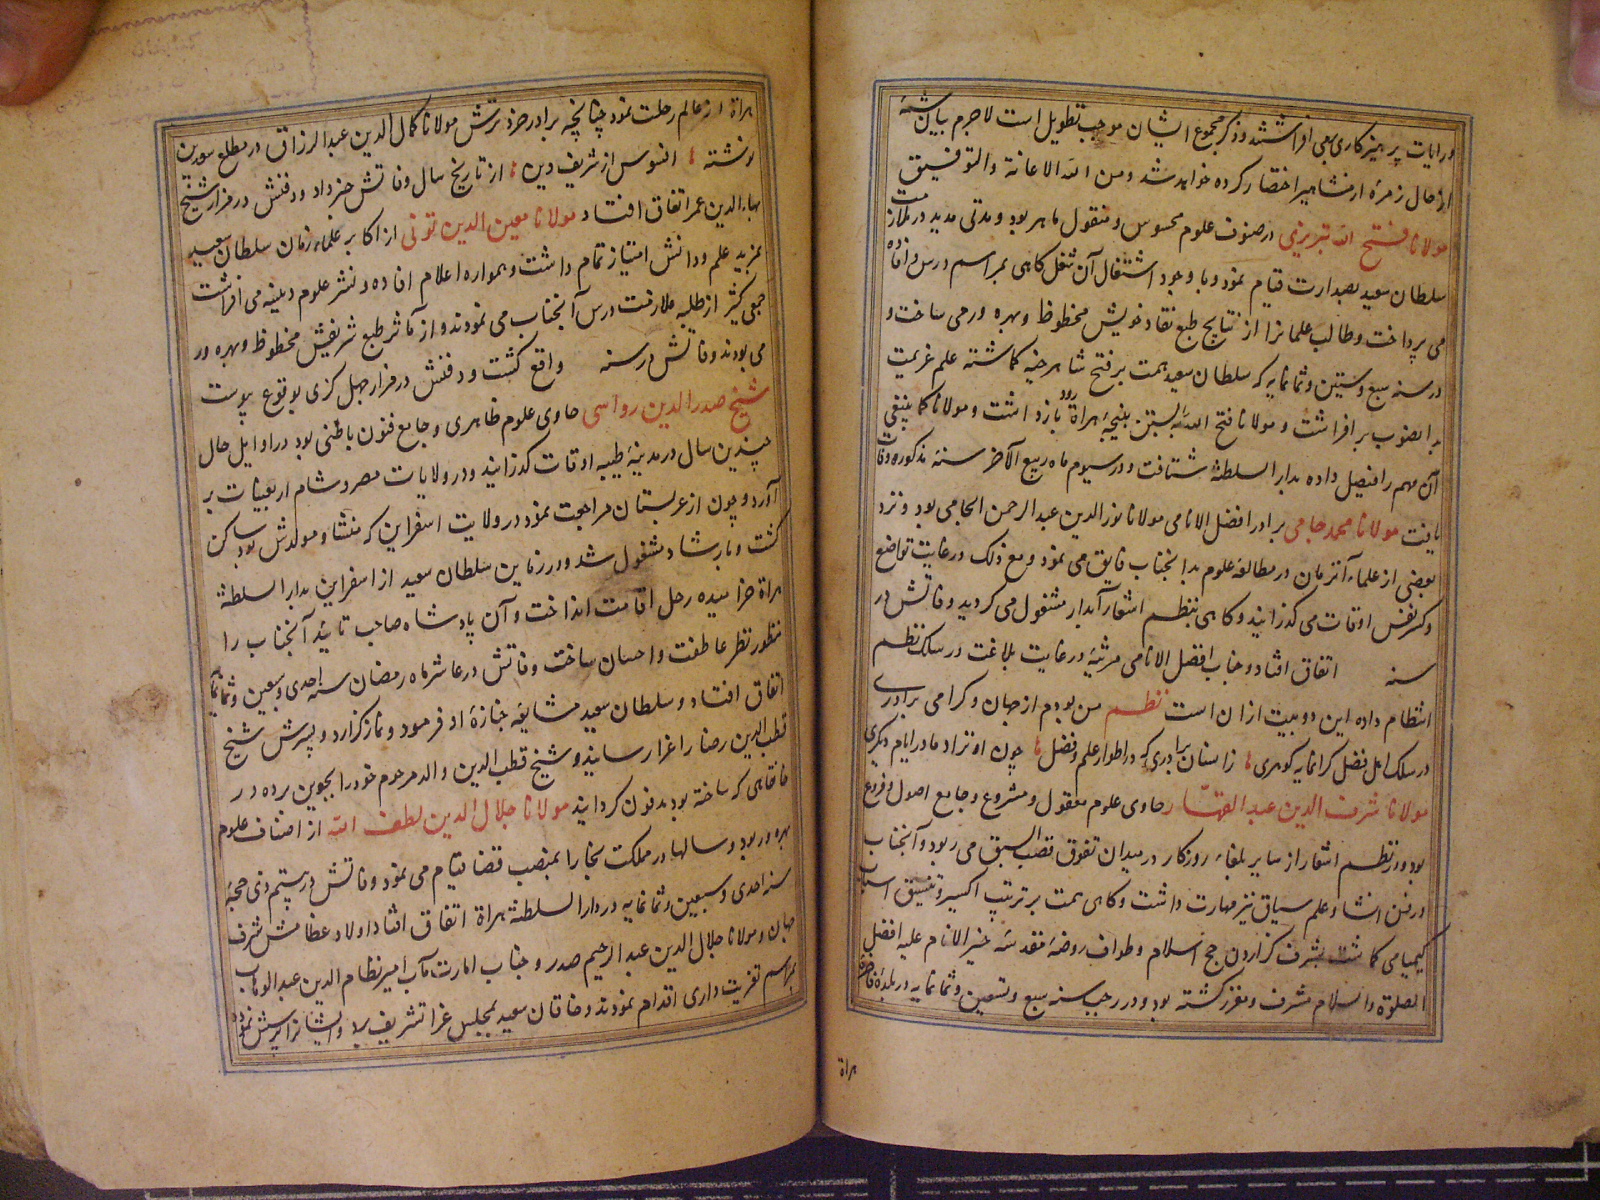 ورایات پرهیزکاری می افراشتند و ذکر مجموع ایشان موجب تطویل است لاجرم بیان شمهٔ
از حال زمرهٔ از مشاهیر اختصار کرده خواهد شد ومن الله الاعانة والتوفیق
مولانا فتح الله تبریزی در صنوف علوم محسوس و منقول ماهر بود و مدتی مدید در ملازمت
سلطان سعید بصدارت قیام نمود و با وجود اشتغال آن شغل کاهی بمراسم درس وافاده
می پرداخت و طالب علمانرا از نتایج طبع نقاد خویش محظوظ و بهره ور می ساخت و
در سنه سبع وستین وثمانمایه که سلطان سعید همت بر فتح شاهرخیه کماشته علم عزیمت
بدانصوب برافراشت و مولانا فتح الله به بستن بنیچهٔ هراة رود بازداشت و مولانا کماینبغی
آن مهم را فیصل داده بدار السلطنة شتافت و در سیوم ماه ربیع الآخر سنهٔ مذکوره وفات
یافت مولانا محمد جامی برادر افضل الانامی مولانا نور الدین عبد الرحمن الجامی بود و نزد
بعضی از علماء آنزمان در مطالعهٔ علوم بدانجناب فایق می نمود و مع ذلک در غایت تواضع
و کسر نفس اوقات می کذرانید و کاهی بنظم اشعار آبدار مشغول می کردید و فاتش در
سنه اتفاق افتاد و جناب افضل الانامی مرثیهٔ در غایت بلاغت در سلک نظم
انتظام داده این دو بیت ازان است نظم من بودم از جهان و کرامی برادری
در سلک اهل فضل کرانمایه کوهری زانسان برادری که در اطوار علم و فضل چون او نزاد مادر ایام دیکری
مولانا شرف الدین عبد القهار حاوی علوم معقول و مشروع و جامع اصول و فروع
بود و در نظم اشعار از سایر بلغاء روزکار در میدان تفوق قصب السبق می ربود و آنجناب
در فن انشا و علم سیاق نیز مهارت داشت و کاهی همت بر ترتیب اکسیر و تنسیق اسباب
کیمیا می کماشت بشرف کزاردن حج اسلام و طواف روضهٔ مقدسهٔ خیر الانام علیه افضل
الصلوة والسلام مشرف و معزز کشته بود و در رجب سنه سبع وتسعین وثمانمایه در بلدهٔ فاخرهٔ
هراة
هراة از عالم رحلت نمود چنانچه برادر خردترش مولانا کمال الدین عبد الرزاق در مطلع سعدین
نوشته افسوس از شریف دین از تاریخ سال وفاتش خبر داد و دفنش در مزار شیخ
بهاء الدین عمر اتفاق افتاد مولانا معین الدین تونی از اکابر علماء زمان سلطان سعید
بمزید علم و دانش امتیاز تمام داشت و همواره اعلام افاده و نشر علوم دینیه می افراشت
جمعی کثیر از طلبه ملازمت درس آنجناب می نمودند و از مآثر طبع شریفش محظوظ و بهره ور
می بودند وفاتش در سنه واقع کشت و دفنش در مزار چهل کزی بوقوع پیوست
شیخ صدر الدین رواسی حاوی علوم ظاهری و جامع فنون باطنی بود در اوایل حال
چندین سال در مدینهٔ طیبه اوقات کذرانید و در ولایات مصر و شام اربعینات بر
آورد و چون از عربستان مراجعت نمود در ولایت اسفراین که منشا و مولدش بود ساکن
کشت و بارشاد مشغول شد و در زمان سلطان سعید از اسفراین بدار السلطنة
هراة خرامیده رحل اقامت انداخت و آن پادشاه صاحب تایید آنجناب را
منظور نظر عاطفت و احسان ساخت وفاتش در عاشر ماه رمضان سنه احدی وسبعین وثمانمایه
اتفاق افتاد و سلطان سعید مشایعهٔ جنازهٔ او فرمود و نماز کزارد و پسرش شیخ
قطب الدین رضا را عزا رسانید و شیخ قطب الدین والد مرحوم خود را بجوین برده در
خانقاهی که ساخته بود مدفون کردانید مولانا جلال الدین لطف الله از اصناف علوم
بهره ور بود و سالها در مملکت بخارا بمنصب قضا قیام می نمود وفاتش در بیستم ذی حجهٔ
سنه احدی وسبعین وثمانمایه در دار السلطنة هراة اتفاق افتاد اولاد عظامش شرف
جهان و مولانا جلال الدین عبد الرحیم صدر و جناب امارت مآب امیر نظام الدین عبد الوهاب
بمراسم تعزیت داری اقدام نمودند و خاقان سعید بمجلس عزا تشریف برد و ایشانرا پرسش نموده